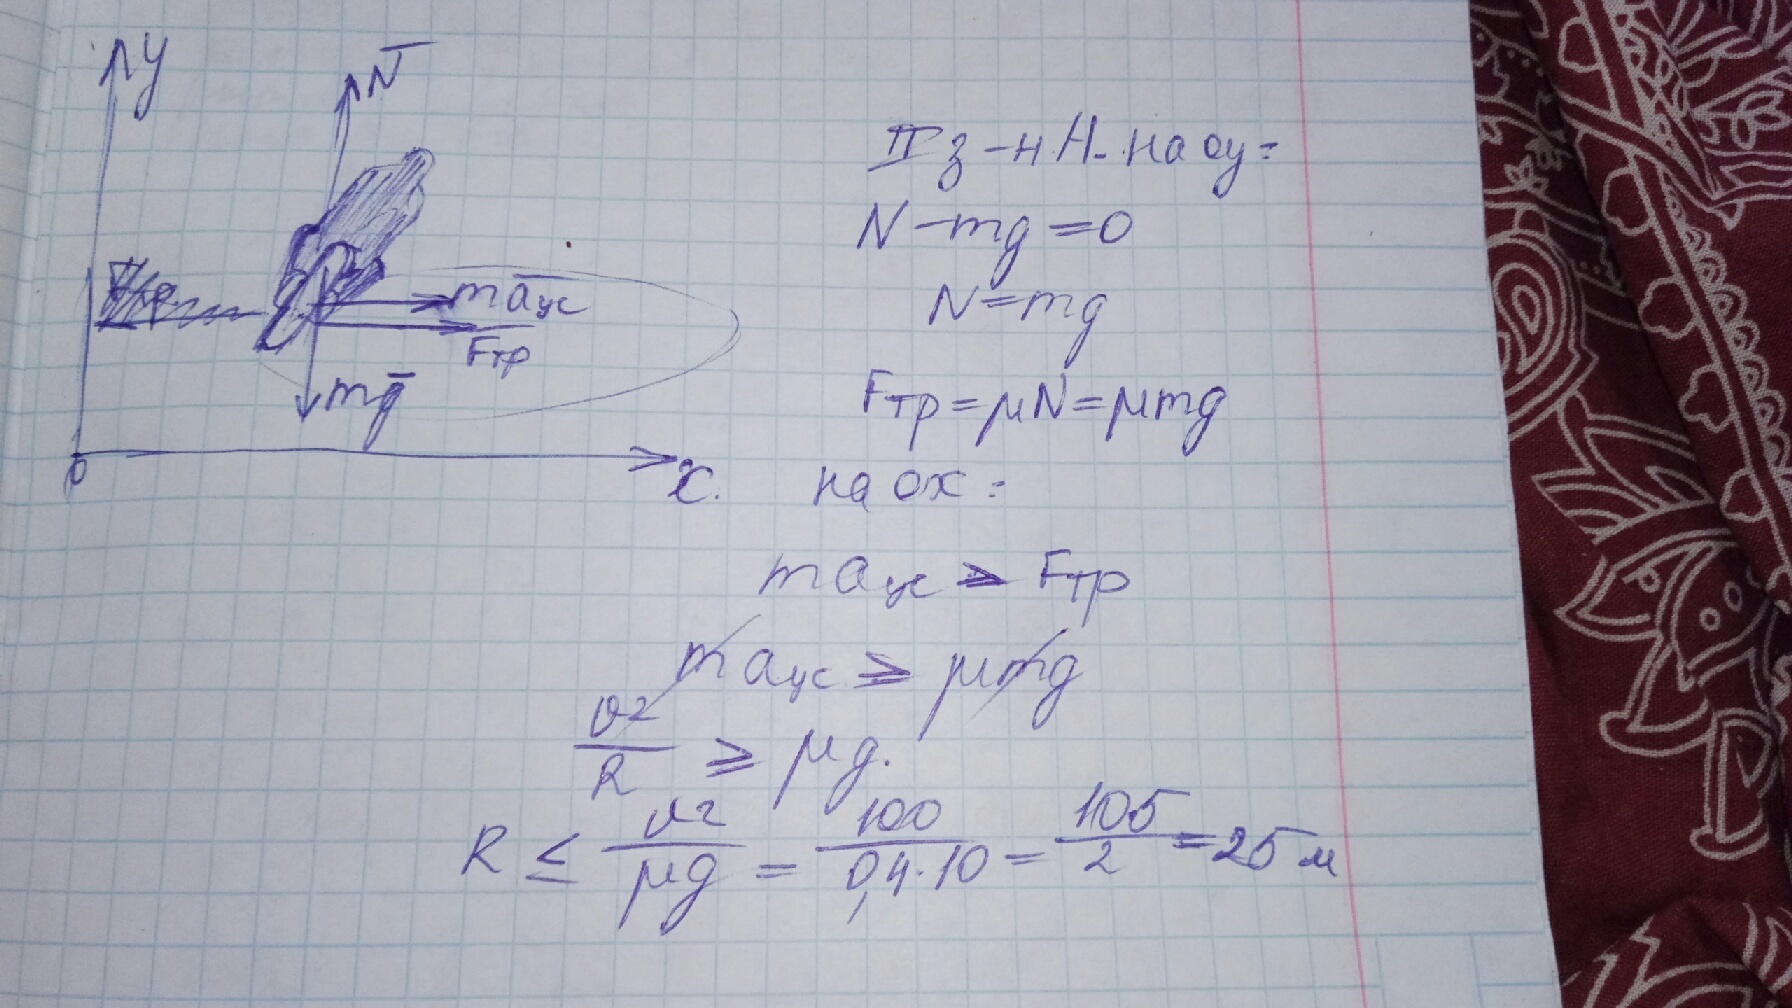 y
N
ma цс
Fтр
mg
0
x.
II з-н Н. на оу:
N - mg = 0
N = mg
Fтр = μN = μmg
на ох:
ma цс ≥ Fтр
ma цс ≥ μmg
v2/R ≥ μg.
R ≤ v2/μg = 100/0,4·10 = 105/2 = 25 м